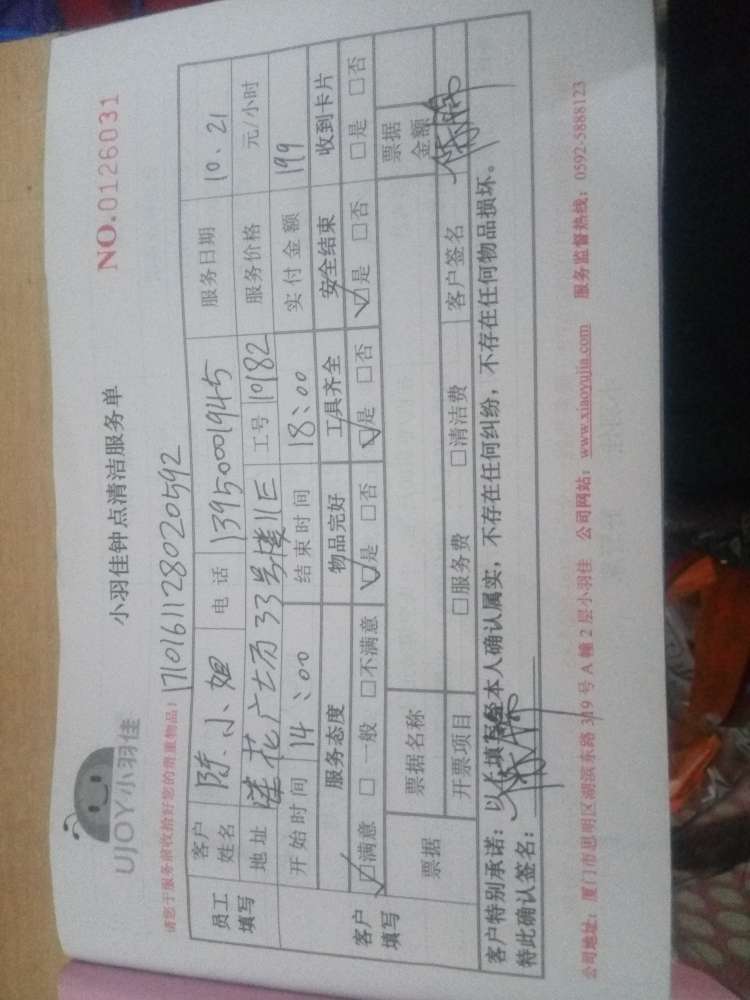 UJOY小羽佳
小羽佳钟点清洁服务单
NO.0126031
请您于服务前收拾好您的贵重物品!
1710161128020592
员工填写 客户姓名 陈小姐 电话 13950001945 服务日期 10.21
地址 莲花广场33号楼11E 工号 10182 服务价格 元/小时
开始时间 14:00 结束时间 18:00 实付金额 199
客户填写 服务态度 物品完好 工具齐全 安全结束 收到卡片
☑满意 □一般 □不满意 ☑是 □否 ☑是 □否 ☑是 □否 □是 □否
票据 票据名称 票据金额
开票项目 □服务费 □清洁费 客户签名
客户特别承诺:以上填写经本人确认属实,不存在任何纠纷,不存在任何物品损坏。
特此确认签名:
公司地址:厦门市思明区湖滨东路319号A幢2层小羽佳 公司网站:www.xiaoyujia.com 服务监督热线:0592-5888123